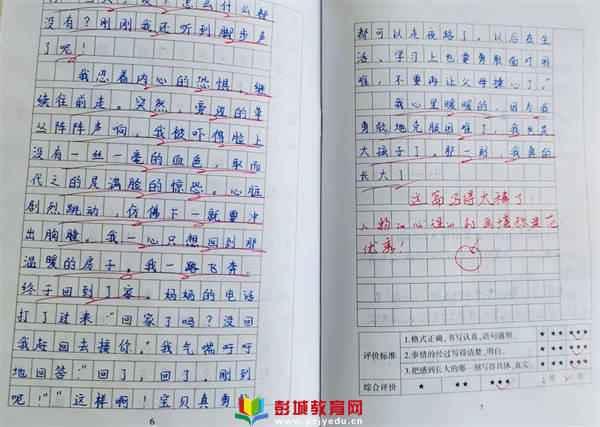 没有？刚刚我还听到脚步声
了呢！
我忍着内心的恐惧，继
续往前走。突然，旁边的草
丛阵阵声响，我被吓得脸上
没有一丝一毫的血色，取而
代之的是满脸的惊恐。心脏
剧烈跳动，仿佛下一就要冲
出胸膛。我一心只想回到那
温暖的房子。我一路飞奔，
终于回到了家。妈妈的电话
打了过来：“回家了吗？没回
我赶回去接你。”我气喘吁吁
地回答：“回了，回了，刚到
呢！”“这样啊！宝贝真勇敢
6
都可以走夜路了。以后在生
活、学习上也要勇敢面对困
难，不要再让父母操心了。”
我心里暖暖的，因为我
勇敢地克服困难了，我也是
大孩子了。那一刻，我真的
长大了……
这篇写得太棒了！
人物的心理
优秀！
评价标准
1.格式正确，书写认真，语句通顺。 ★ ★ ★★★
2.事情的经过写得清楚、明白。 ★ ★ ★★★
3.把感到长大的那一刻写得具体、真实。 ★ ★ ★★★
综合评价 ★ ★★ ★★★ 月 日
7
彭城教育网
www.pcjyedu.cn